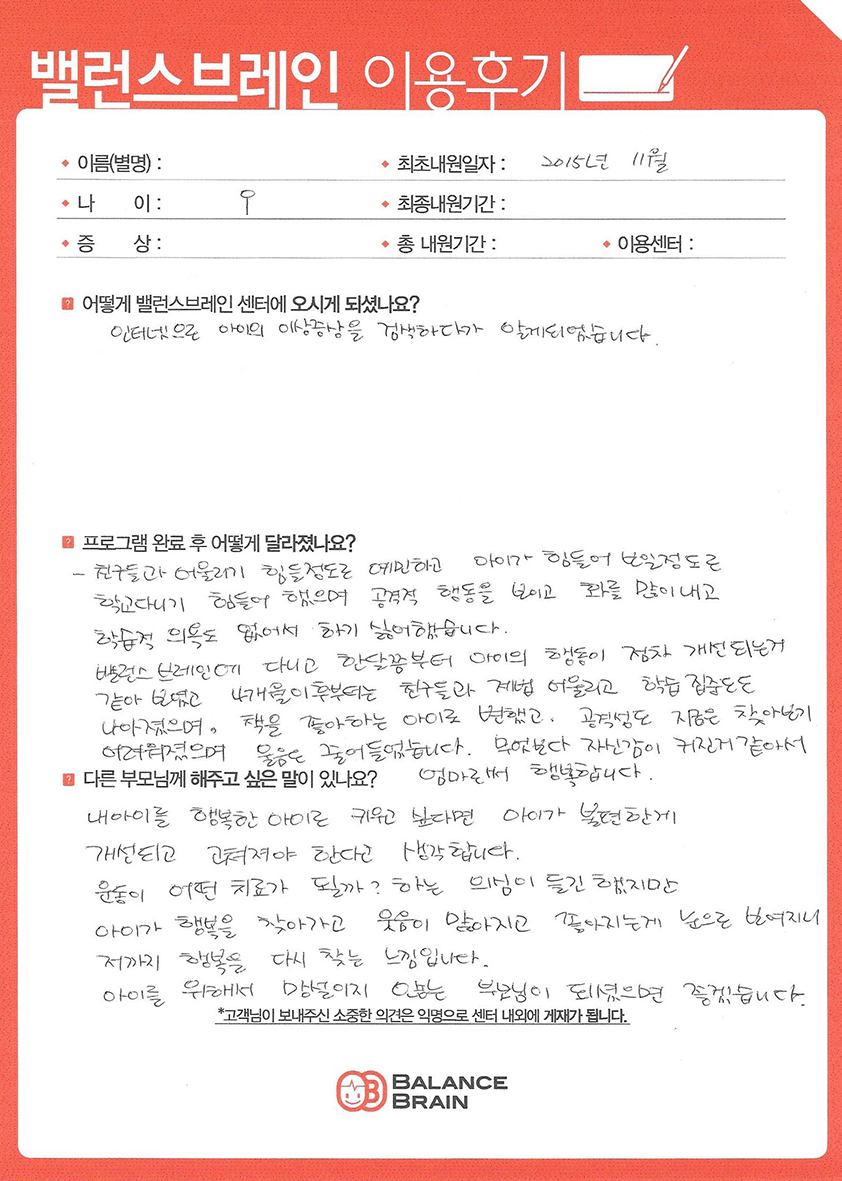 밸런스브레인 이용후기
이름(별명) : 최초내원일자 : 2015년 11월
나 이 : 9 최종내원기간 :
증 상 : 총 내원기간 : 이용센터 :
어떻게 밸런스브레인 센터에 오시게 되셨나요?
인터넷으로 아이의 이상증상을 검색하다가 알게되었습니다.
프로그램 완료 후 어떻게 달라졌나요?
- 친구들과 어울리기 힘들정도로 예민하고 아이가 힘들어 보일정도로
학교다니기 힘들어 했으며 공격적 행동을 보이고 화를 많이내고
학습적 의욕도 없어서 하기 싫어했습니다.
밸런스브레인에 다니고 한달쯤부터 아이의 행동이 점차 개선되는거
같아 보였고 4개월이후부터는 친구들과 제법 어울리고 학습 집중도도
나아졌으며, 책을 좋아하는 아이로 변했고. 공격성도 지금은 찾아보기
어려워졌으며 울음은 줄어들었습니다. 무엇보다 자신감이 커진거 같아서
엄마로써 행복합니다.
다른 부모님께 해주고 싶은 말이 있나요?
내아이를 행복한 아이로 키우고 싶다면 아이가 불편한게
개선되고 고쳐져야 한다고 생각합니다.
운동이 어떤 치료가 될까? 하는 의심이 들긴 했지만
아이가 행복을 찾아가고 웃음이 많아지고 좋아지는게 눈으로 보여지니
저까지 행복을 다시 찾는 느낌입니다.
아이를 위해서 망설이지 않는 부모님이 되셨으면 좋겠습니다.
*고객님이 보내주신 소중한 의견은 익명으로 센터 내외에 게재가 됩니다.
BALANCE
BRAIN